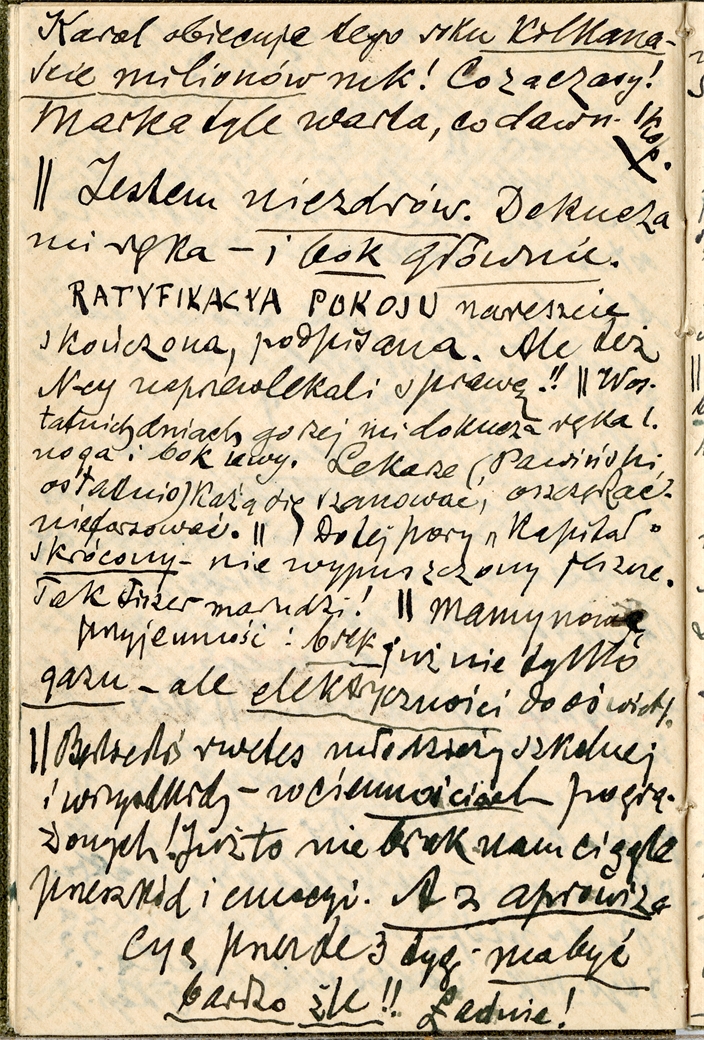 Karol obiecuje tego roku kilkana-
ście milionów mk! Co za czasy!
Marka tyle warta, co dawn. 1 kop.
|| Jestem niezdrów. Dokucza
mi ręka – i bok głównie.
RATYFIKACYA POKOJU nareszcie
skończona, podpisana. Ale też
N-cy naprzewlekali sprawę!! || W os-
tatnich dniach gorzej mi dokucza ręka l.
noga i bok lewy. Lekarze (Pawiński
ostatnio) każą się szanować, oszczędzać-
nieforsować. || Do tej pory „Kapitał"
skrócony – nie wypuszczony jeszcze.
Tak Fiszer marudzi! || Mamy nową
przyjemność: brak już nie tylko
gazu – ale elektryczności do oświetl.
|| Będzie dziś rwetes młodzieży szkolnej
i wszystkich – w ciemnościach pogrą-
żonych! Już to nie brak nam ciągle
przeszkód i emocyi. A z aprowiza
cyą przede 3 tyg. ma być
bardzo źle!! Ładnie!